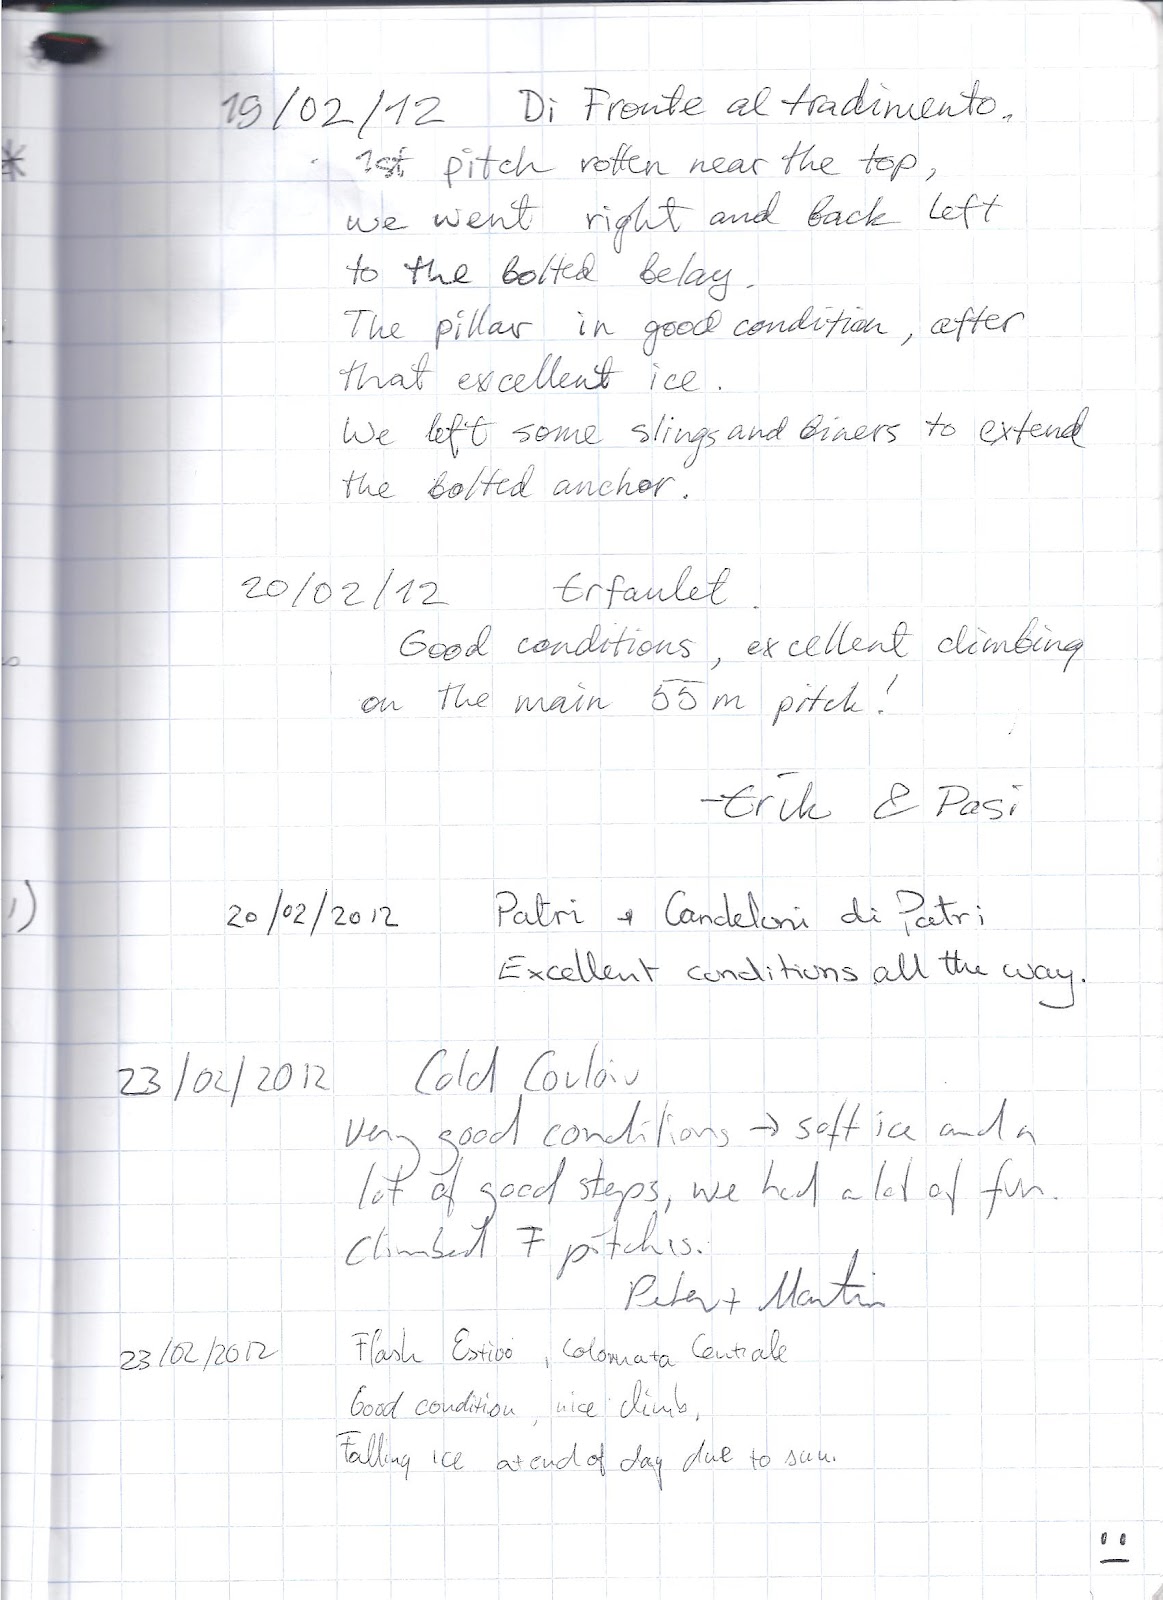 19/02/12 Di Fronte al tradimento.
1st pitch rotten near the top,
we went right and back left
to the bolted belay.
The pillar in good condition, after
that excellent ice.
We left some slings and biners to extend
the bolted anchor.
20/02/12 Erfaulet.
Good conditions, excellent climbing
on the main 55m pitch!
-Erik & Pasi
20/02/2012 Patri + Candeloni di Patri
Excellent conditions all the way.
23/02/2012 Cold Couloir
Very good conditions → soft ice and a
lot of good steps, we had a lot of fun.
Climbed 7 pitches.
Peter + Martin
23/02/2012 Flash Estivo, Colonnata Centrale
Good condition, nice climb,
Falling ice at end of day due to sun.